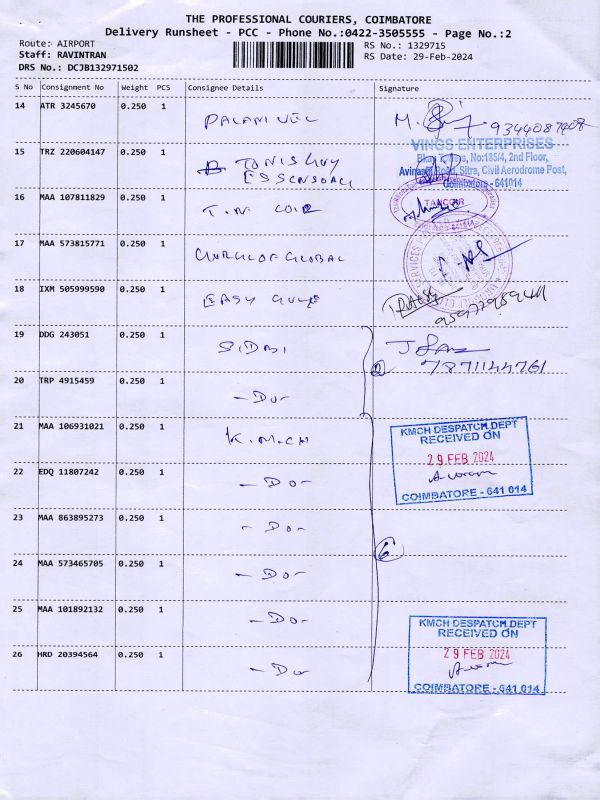 THE PROFESSIONAL COURIERS, COIMBATORE
Delivery Runsheet - PCC - Phone No.:0422-3505555 - Page No.:2
Route: AIRPORT
RS No.: 1329715
Staff: RAVINTRAN
RS Date: 29-Feb-2024
DRS No.: DCJB132971502
S No Consignment No Weight PCS Consignee Details Signature
14 ATR 3245670 0.250 1 PALANIVEL M. 9344087408
15 TRZ 220604147 0.250 1
VINGS ENTERPRISES
185/4, 2nd Floor,
Avinashi Road, Sitra, Civil Aerodrome Post,
Coimbatore - 641014
16 MAA 107811829 0.250 1 T.N.
TANCOIR
17 MAA 573815771 0.250 1 GLOBAL
18 IXM 505999590 0.250 1 EASY
19 DDG 243051 0.250 1 SIDBI
7871144761
20 TRP 4915459 0.250 1 - Do -
2
21 MAA 106931021 0.250 1 K.M.CH
KMCH DESPATCH DEPT
RECEIVED ON
29 FEB 2024
COIMBATORE - 641 014
22 EDQ 11807242 0.250 1 - Do -
23 MAA 863895273 0.250 1 - Do -
6
24 MAA 573465705 0.250 1 - Do -
25 MAA 101892132 0.250 1 - Do -
26 HRD 20394564 0.250 1 - Do -
KMCH DESPATCH DEPT
RECEIVED ON
29 FEB 2024
COIMBATORE - 641 014